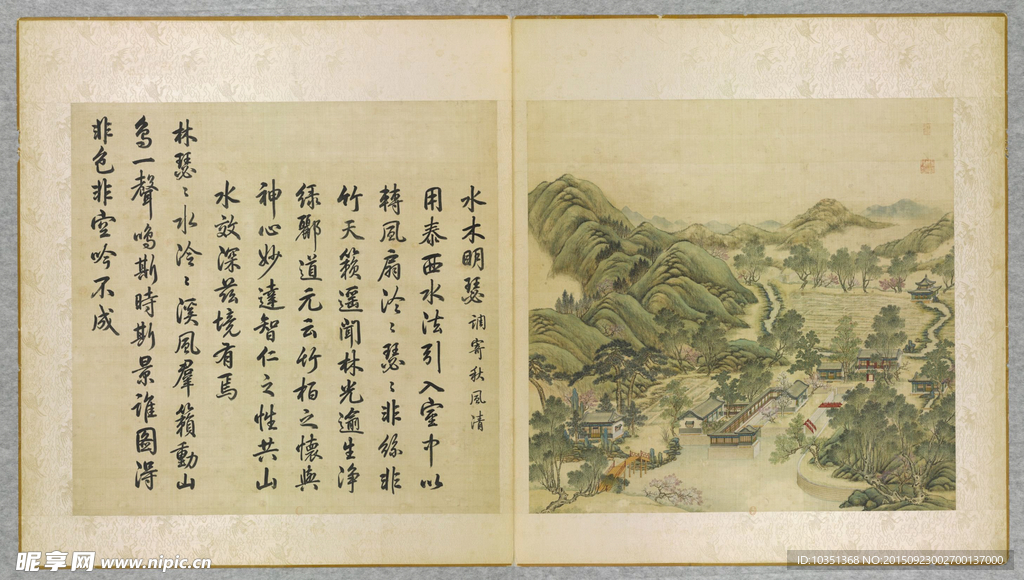 水木明瑟 調寄秋風清
用泰西水法引入室中以
轉風扇泠〻瑟〻非絲非
竹天籟遥聞林光逾生淨
緑酈道元云竹柏之懷與
神心妙達智仁之性共山
水效深兹境有焉
林瑟〻水泠〻溪風羣籟動山
鳥一聲鳴斯時斯景誰圖得
非色非空吟不成
昵享网 www.nipic.cn
ID:10351368 NO:20150923002700137000